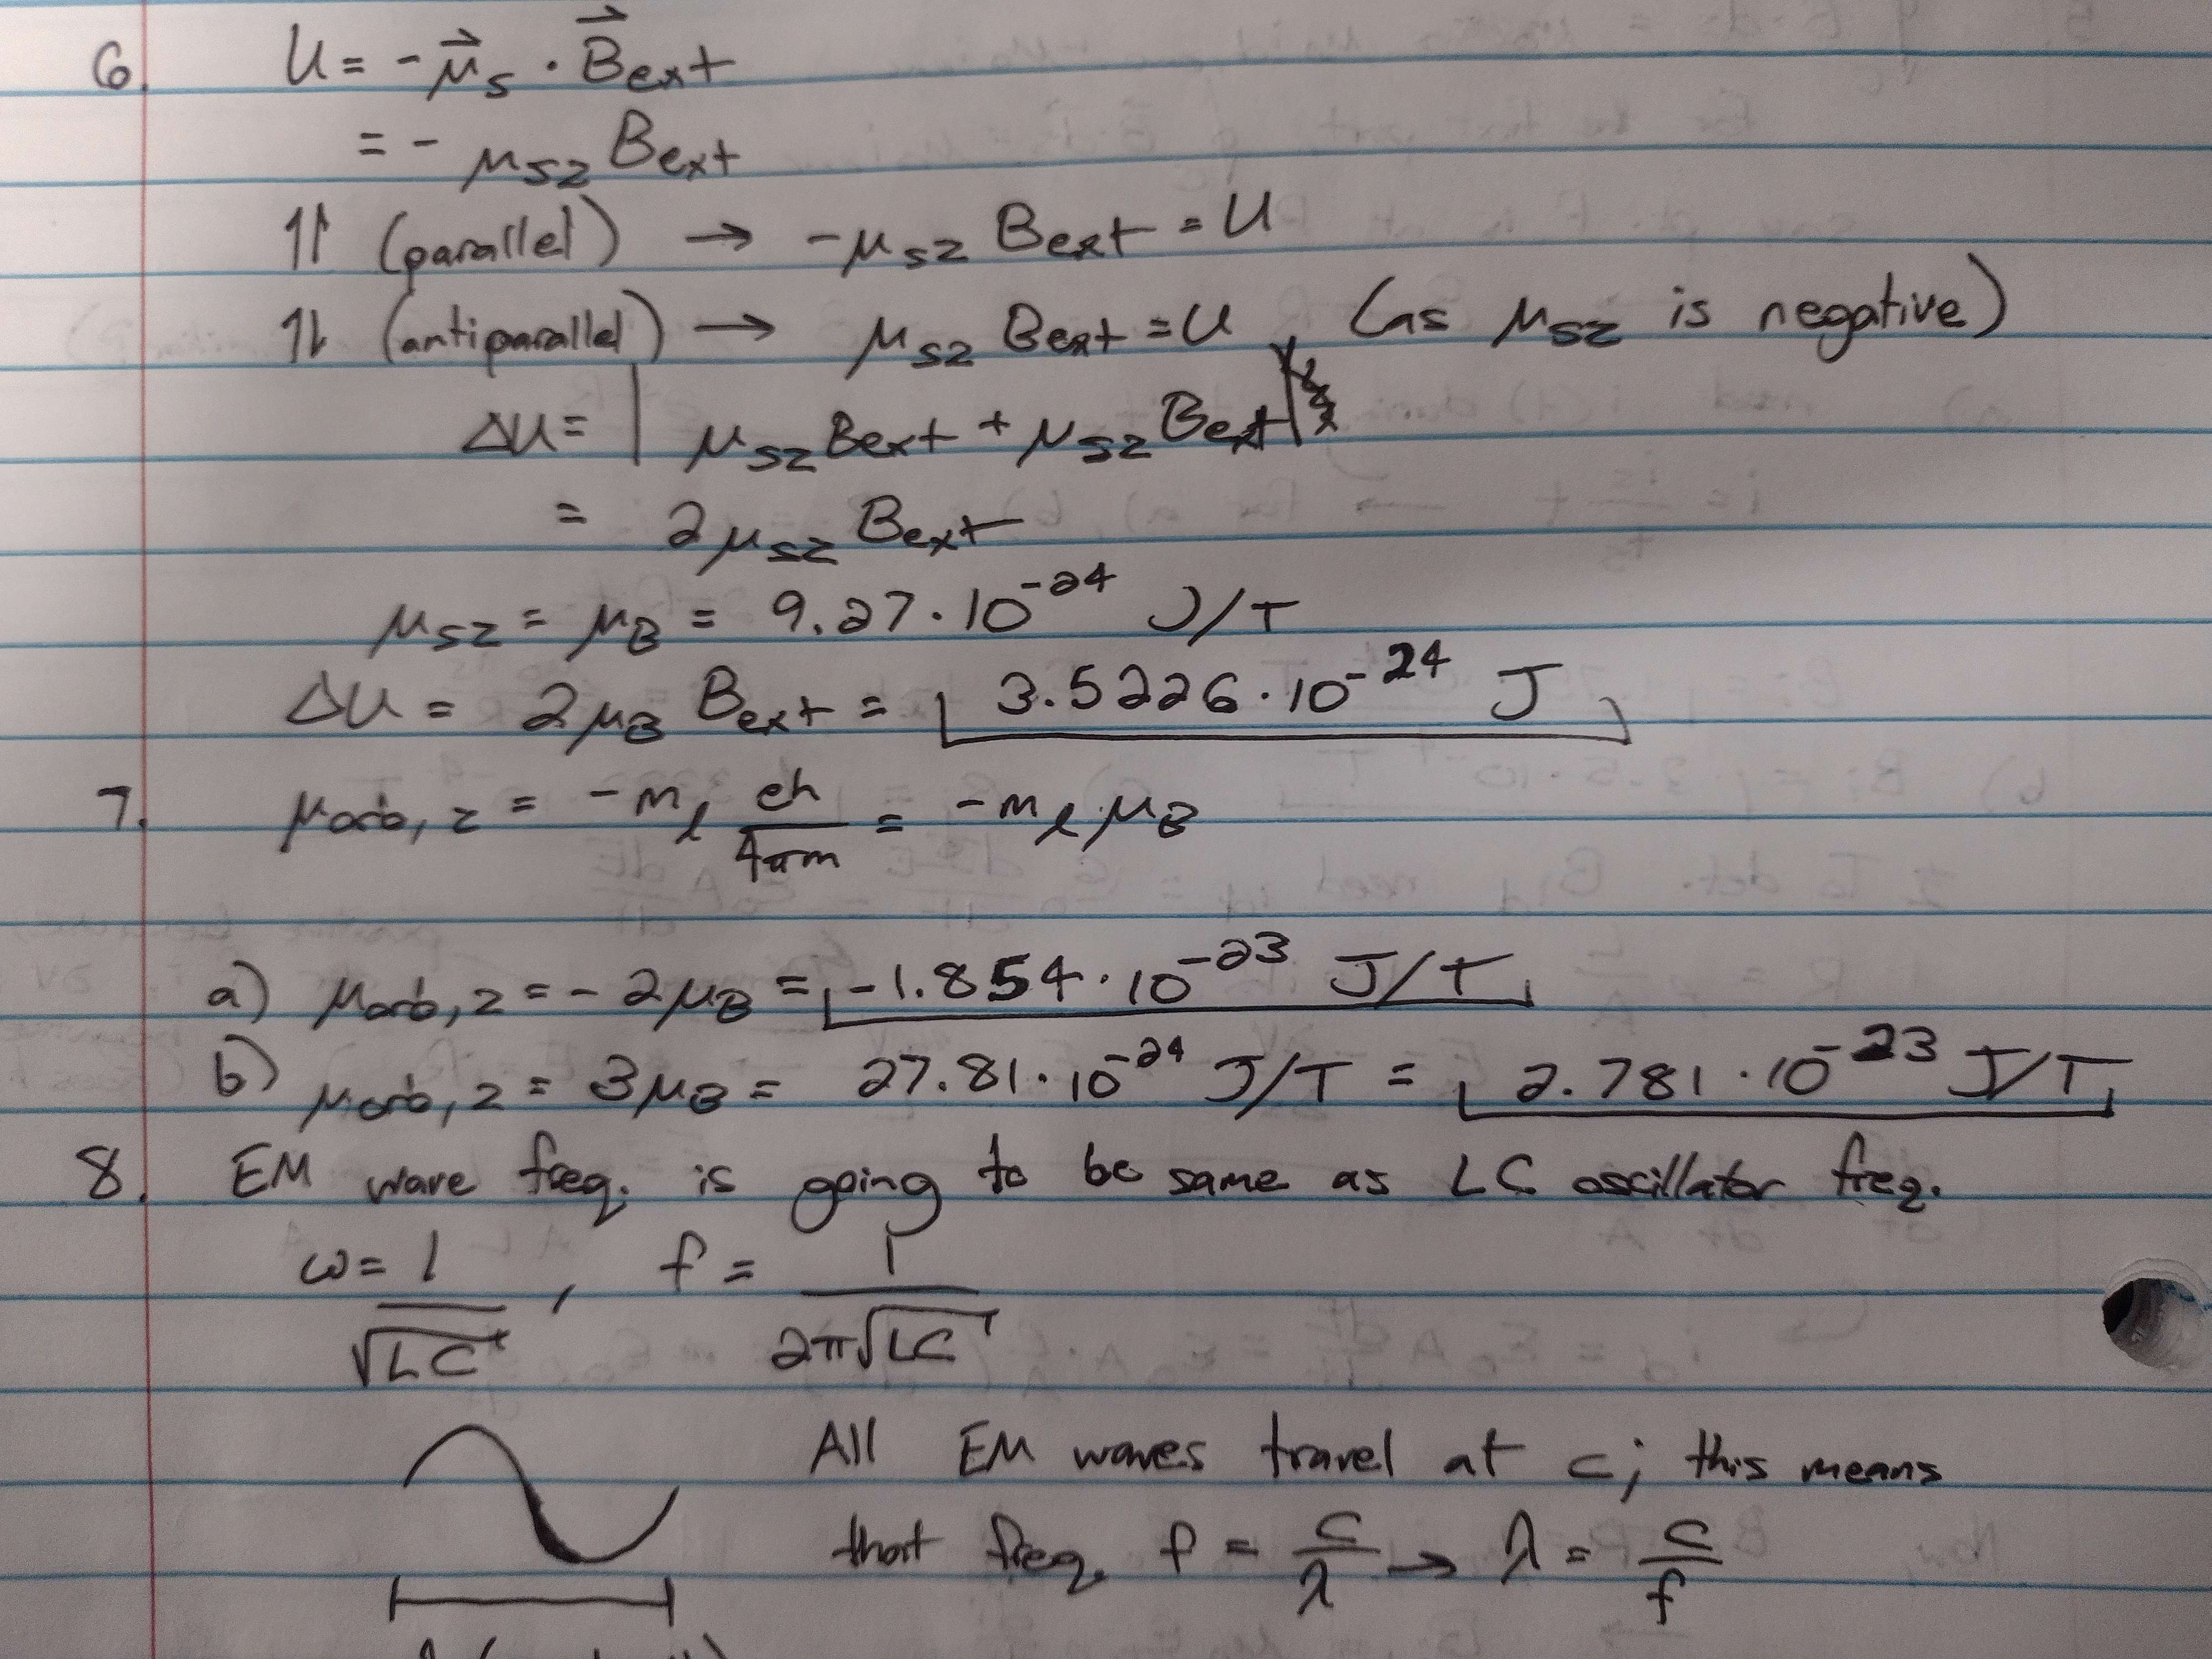 6. U = -μ⃗s · B⃗ext
= - μsz Bext
↿↾ (parallel) → -μsz Bext = U
↿⇂ (antiparallel) → μsz Bext = U, (as μsz is negative)
ΔU = | μsz Bext + μsz Bext |
= 2μsz Bext
μsz = μB = 9.27·10^-24 J/T
ΔU = 2μB Bext = 3.5226·10^-24 J
7. μorb,z = -mℓ eh/4πm = -mℓ μB
a) μorb,z = -2μB = -1.854·10^-23 J/T
b) μorb,z = 3μB = 27.81·10^-24 J/T = 2.781·10^-23 J/T
8. EM wave freq. is going to be same as LC oscillator freq.
ω = 1/√LC, f = 1/2π√LC
All EM waves travel at c; this means
that freq. f = c/λ → λ = c/f